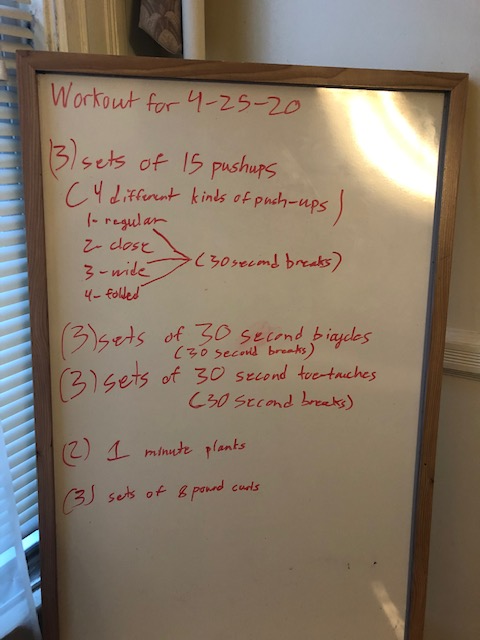 Workout for 4-25-20
(3) sets of 15 pushups
(4 different kinds of push-ups)
1- regular
2- close
3- wide
(30 second breaks)
4- folded
(3) sets of 30 second bicycles
(30 second breaks)
(3) sets of 30 second toe-touches
(30 second breaks)
(2) 1 minute planks
(3) sets of 8 pound curls